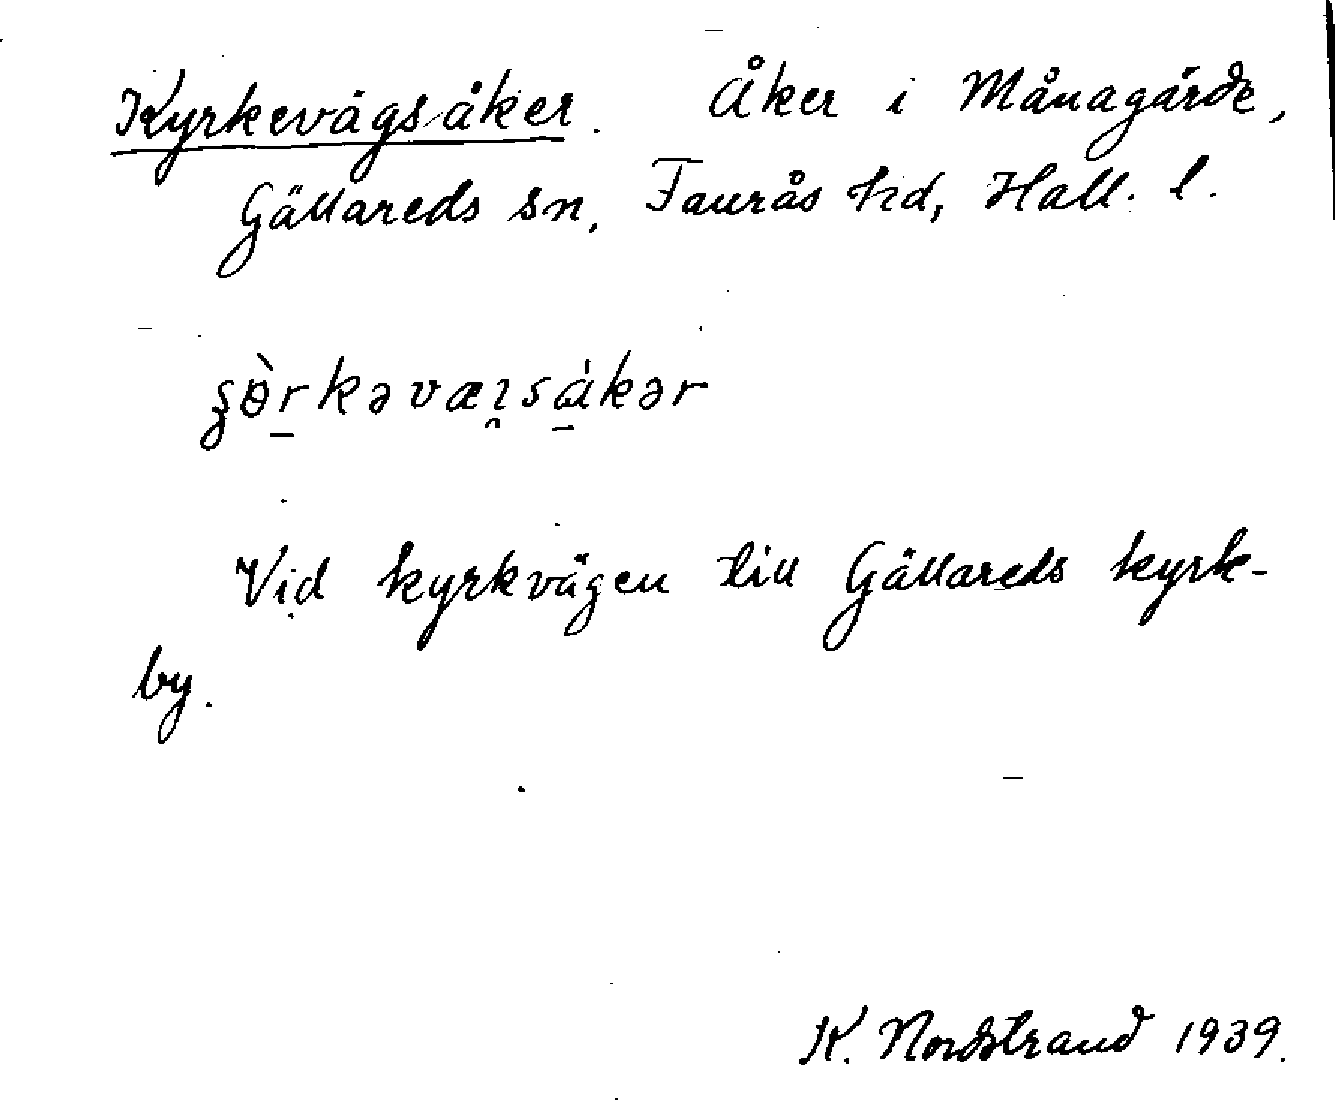 Kyrkevägsåker. Åker i Månagärde,
Gällareds sn, Faurås hd, Hall. l.
ʂɵ̀r̠kəvæı̯sǻ̠kər
Vid kyrkvägen till Gällareds kyrk-
by.
K. Nordstrand 1939.